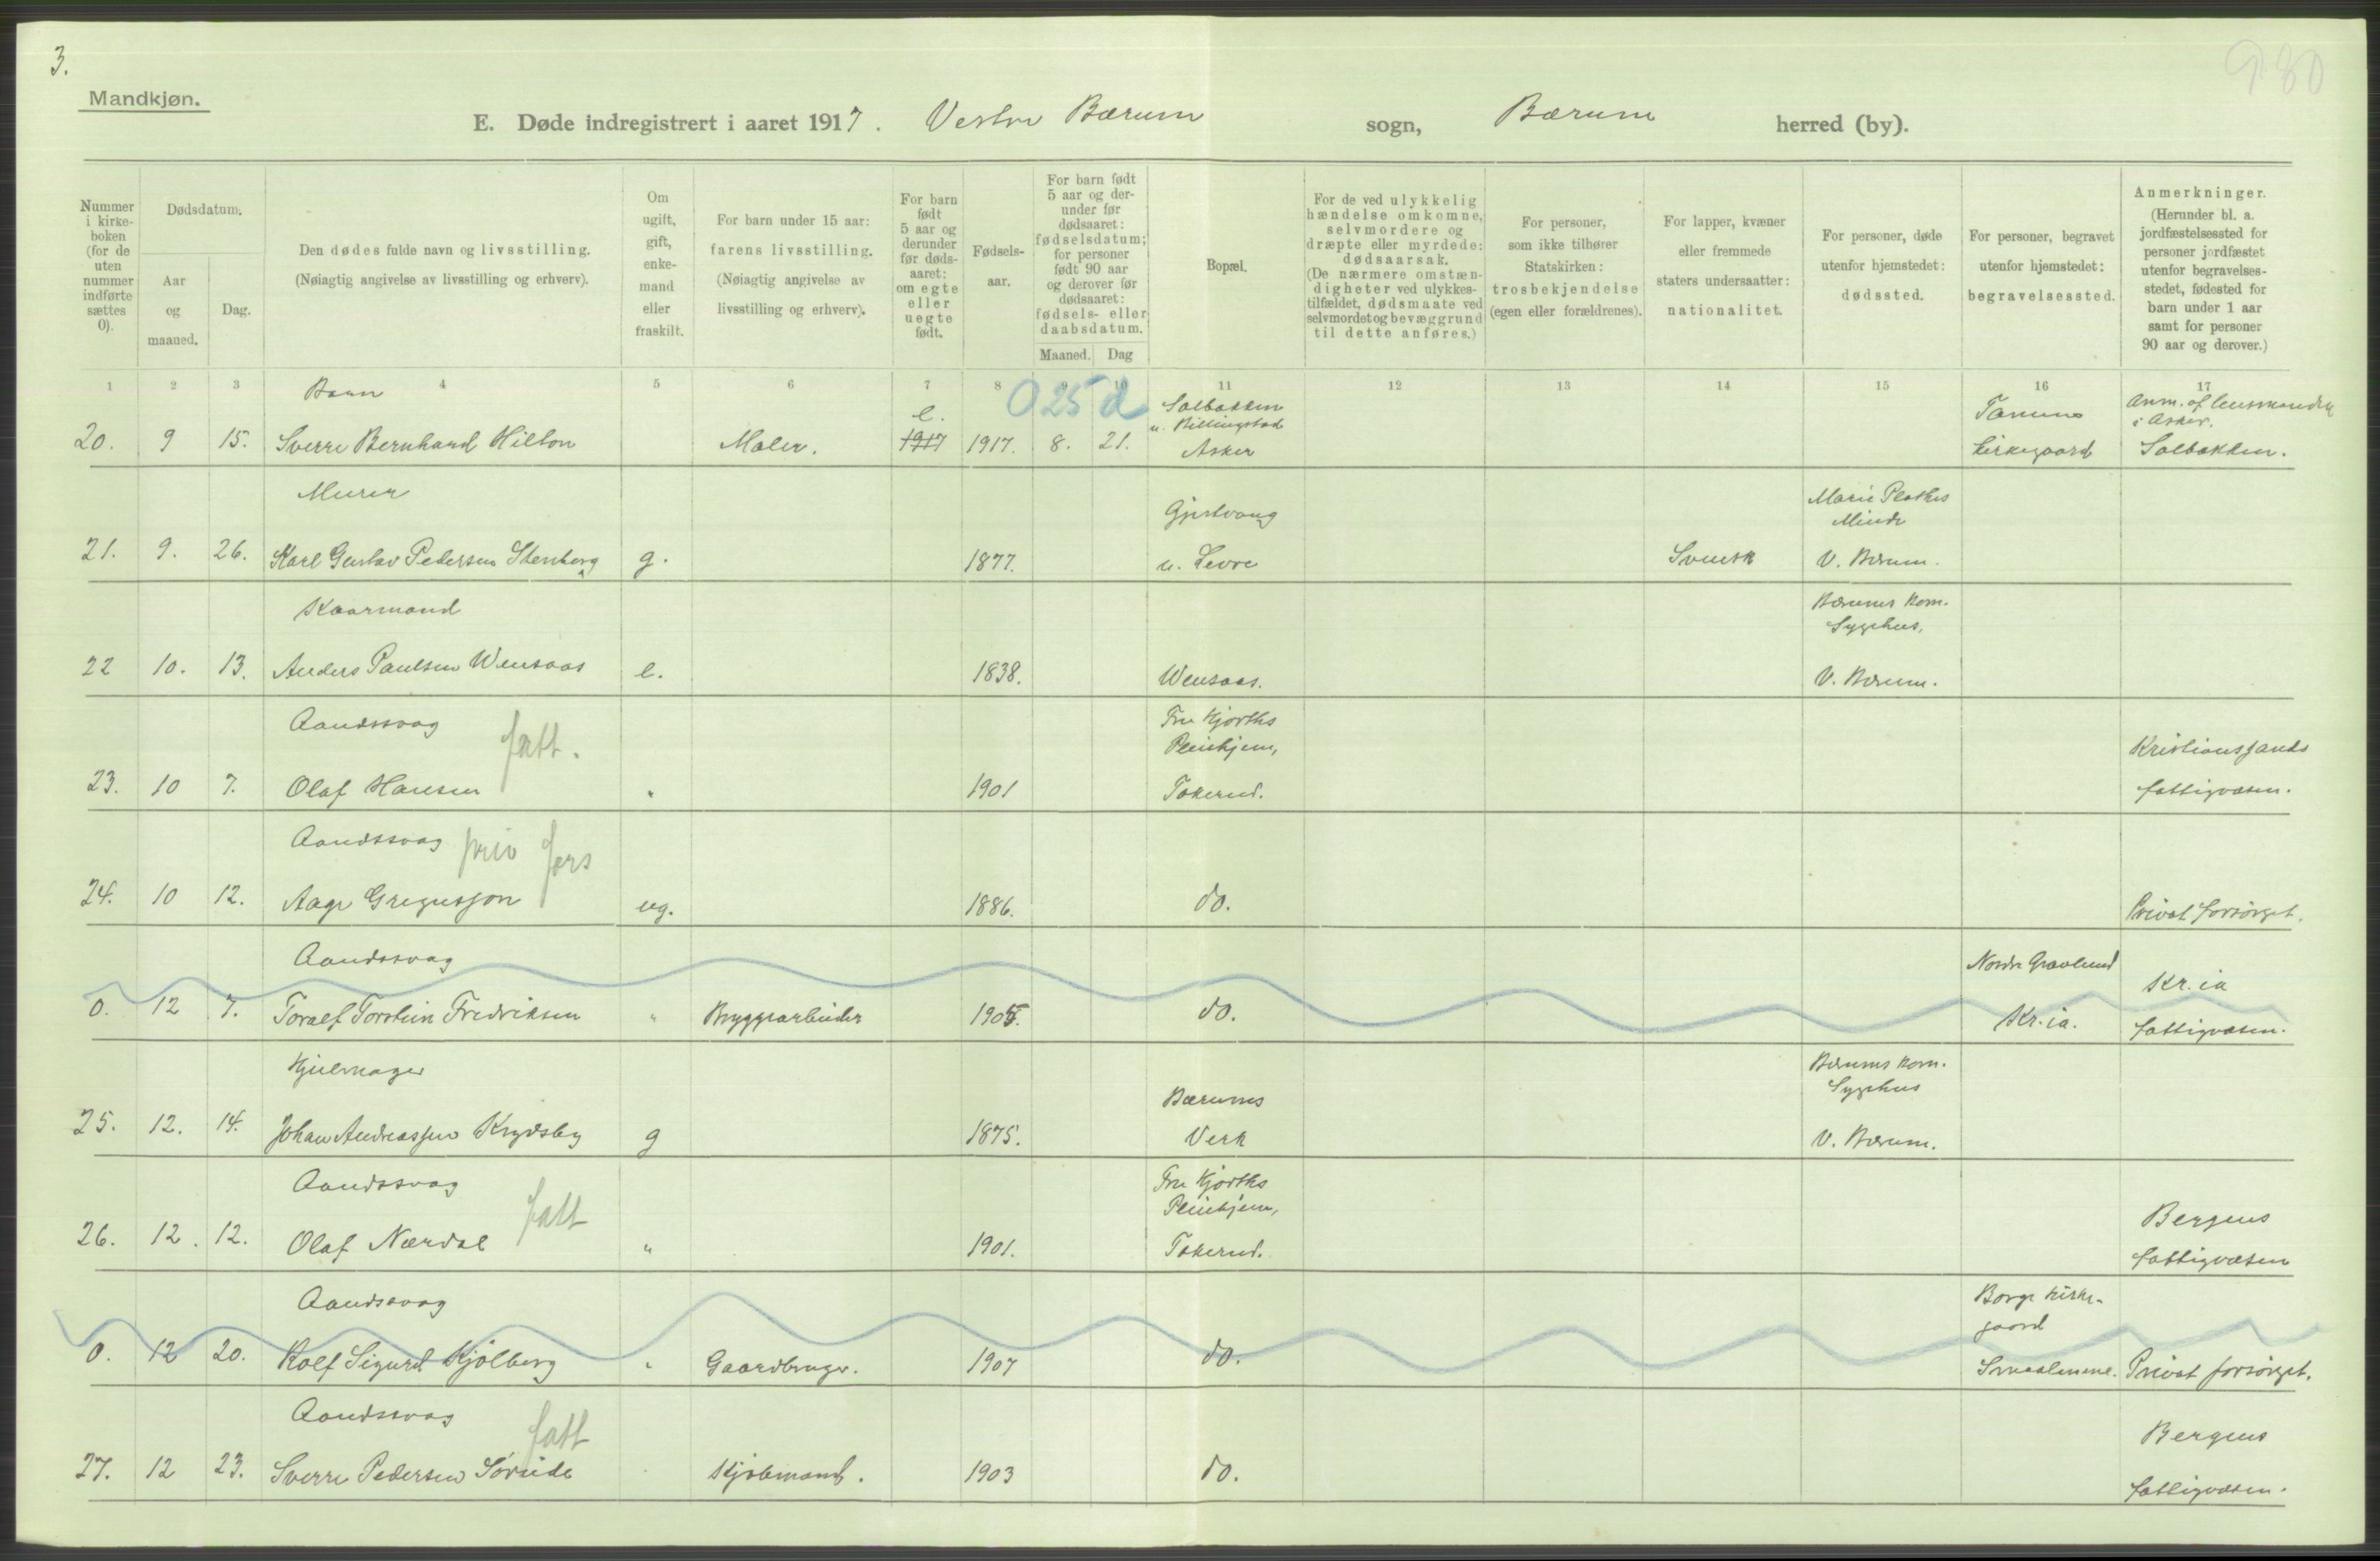 3.
980
Mandkjøn.
E. Døde indregistrert i aaret 1917. Vestre Bærum sogn, Bærum herred (by).
Nummer i kirkeboken (for de uten nummer indførte sættes 0).
Dødsdatum.
Aar og maaned.
Dag.
Den dødes fulde navn og livsstilling.
(Nøiagtig angivelse av livsstilling og erhverv).
Om ugift, gift, enkemand eller fraskilt.
For barn under 15 aar: farens livsstilling.
(Nøiagtig angivelse av livsstilling og erhverv).
For barn født 5 aar og derunder før dødsaaret: om egte eller uegte født.
Fødselsaar.
For barn født 5 aar og derunder før dødsaaret: fødselsdatum; for personer født 90 aar og derover før dødsaaret: fødsels- eller daabsdatum.
Maaned. Dag
Bopæl.
For de ved ulykkelig hændelse omkomne, selvmordere og dræpte eller myrdede: dødsaarsak.
(De nærmere omstændigheter ved ulykkestilfældet, dødsmaate ved selvmordet og bevæggrund til dette anføres.)
For personer, som ikke tilhører Statskirken: trosbekjendelse (egen eller forældrenes).
For lapper, kvæner eller fremmede staters undersaatter: nationalitet.
For personer, døde utenfor hjemstedet: dødssted.
For personer, begravet utenfor hjemstedet: begravelsessted.
Anmerkninger.
(Herunder bl. a. jordfæstelsessted for personer jordfæstet utenfor begravelsesstedet, fødested for barn under 1 aar samt for personer 90 aar og derover.)
1 2 3 4 5 6 7 8 9 11 12 13 14 15 16 17
025 d
Barn e. Solbakken u. Billingstad Tanum Anm. af lensmanden i Asker.
20. 9 15. Sverre Bernhard Hilton Maler. 1917 1917. 8. 21. Asker kirkegaard Solbakken.
Murer Gjestvang Marie Plathes Minde
21. 9. 26. Karl Gustav Pedersen Stenberg g. 1877. u. Levre Svensk V. Bærum.
Kaarmand Bærums kom. Sygehus,
22 10. 13. Anders Paulsen Wensaas e. 1838. Wensaas. V. Bærum.
Aandssvag fatt. Fru Hjorths Pleiehjem, Kristianssands
23. 10 7. Olaf Hansen " 1901 Tokerud. fattigvæsen.
Aandssvag priv fors
24. 10 12. Aage Gregusson ug. 1886. do. Privat forsørget.
Aandssvag Nordre Gravlund Kr.ia
0. 12 7. Toralf Torstein Fredriksen " Bryggearbeider 1905. do. Kr.ia. fattigvæsen.
Hjulmager Bærums Bærums kom. Sygehus
25. 12. 14. Johan Andreassen Krydsby g 1875. Verk V. Bærum.
Aandssvag fatt Fru Hjorths Pleiehjem, Bergens
26. 12. 12. Olaf Nærdal " 1901. Tokerud. fattigvæsen
Aandssvag Borge kirkegaard
0. 12 20. Rolf Sigurd Kjølberg " Gaardbruger. 1907 do. Smaalenene. Privat forsørget.
Aandssvag fatt Bergens
27. 12 23. Sverre Pedersen Søreide Kjøbmand. 1903 do. fattigvæsen.